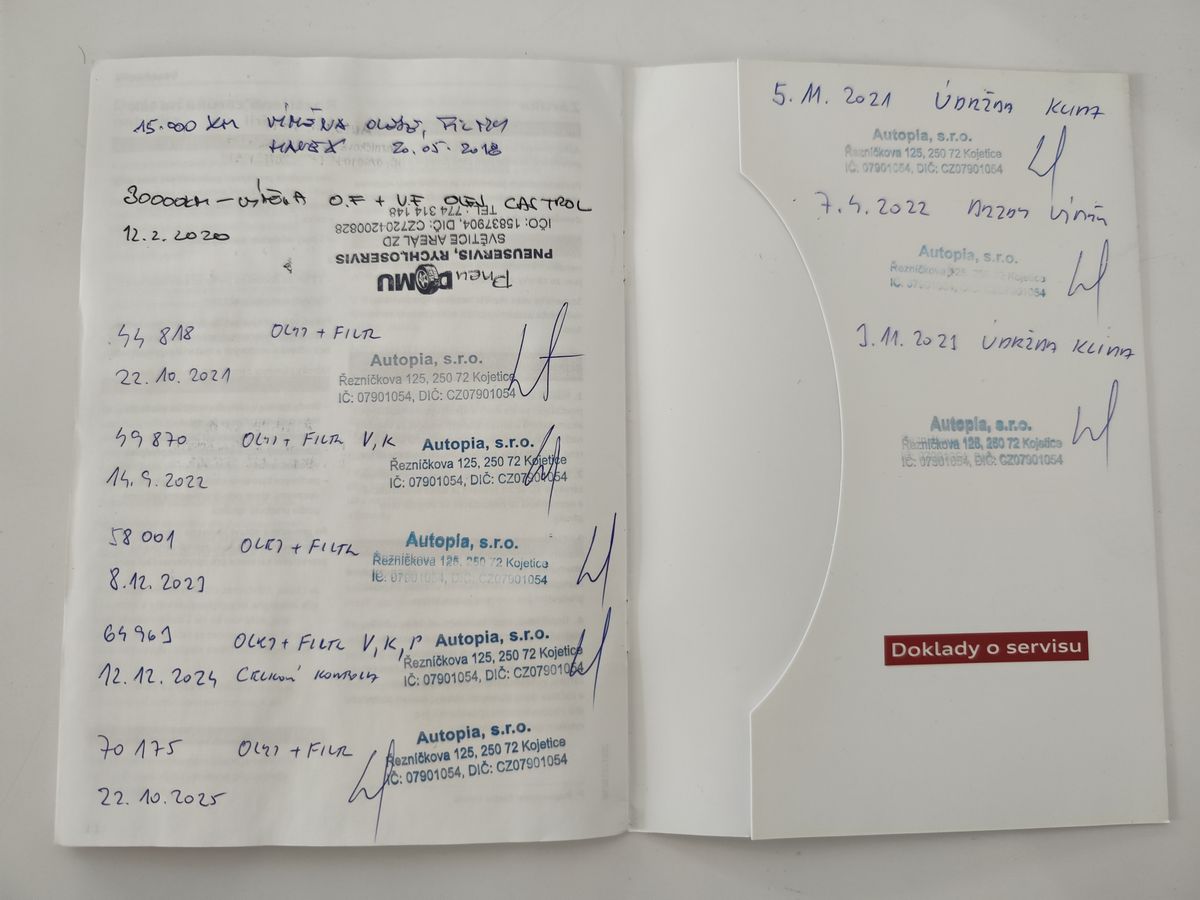 15.000 KM VÍMĚNA OLEJE, FILTRY
20.05.2018
30000KM - O.F + V.F OLEJ CASTROL
12.2.2020
Pneu DOMU
PNEUSERVIS, RYCHLOSERVIS
SVĚTICE AREÁL ZD
IČO: 15837904, DIČ: CZ7204200828
TEL.: 774 314 148
44 818 OLEJ + FILTR
22.10.2021
Autopia, s.r.o.
Řezníčkova 125, 250 72 Kojetice
IČ: 07901054, DIČ: CZ07901054
49 870 OLEJ + FILTR V,K
14.9.2022
Autopia, s.r.o.
Řezníčkova 125, 250 72 Kojetice
IČ: 07901054, DIČ: CZ07901054
58 001 OLEJ + FILTR
8.12.2023
Autopia, s.r.o.
Řezníčkova 125, 250 72 Kojetice
IČ: 07901054, DIČ: CZ07901054
64 963 OLEJ + FILTR V,K,P
12.12.2024 CELKOVÁ KONTROLA
Autopia, s.r.o.
Řezníčkova 125, 250 72 Kojetice
IČ: 07901054, DIČ: CZ07901054
70 175 OLEJ + FILTR
22.10.2025
Autopia, s.r.o.
Řezníčkova 125, 250 72 Kojetice
IČ: 07901054, DIČ: CZ07901054
5.11.2021 ÚDRŽBA KLIMA
Autopia, s.r.o.
Řezníčkova 125, 250 72 Kojetice
IČ: 07901054, DIČ: CZ07901054
7.4.2022
Autopia, s.r.o.
Řezníčkova 125, 250 72 Kojetice
IČ: 07901054, DIČ: CZ07901054
3.11.2023 ÚDRŽBA KLIMA
Autopia, s.r.o.
Řezníčkova 125, 250 72 Kojetice
IČ: 07901054, DIČ: CZ07901054
Doklady o servisu